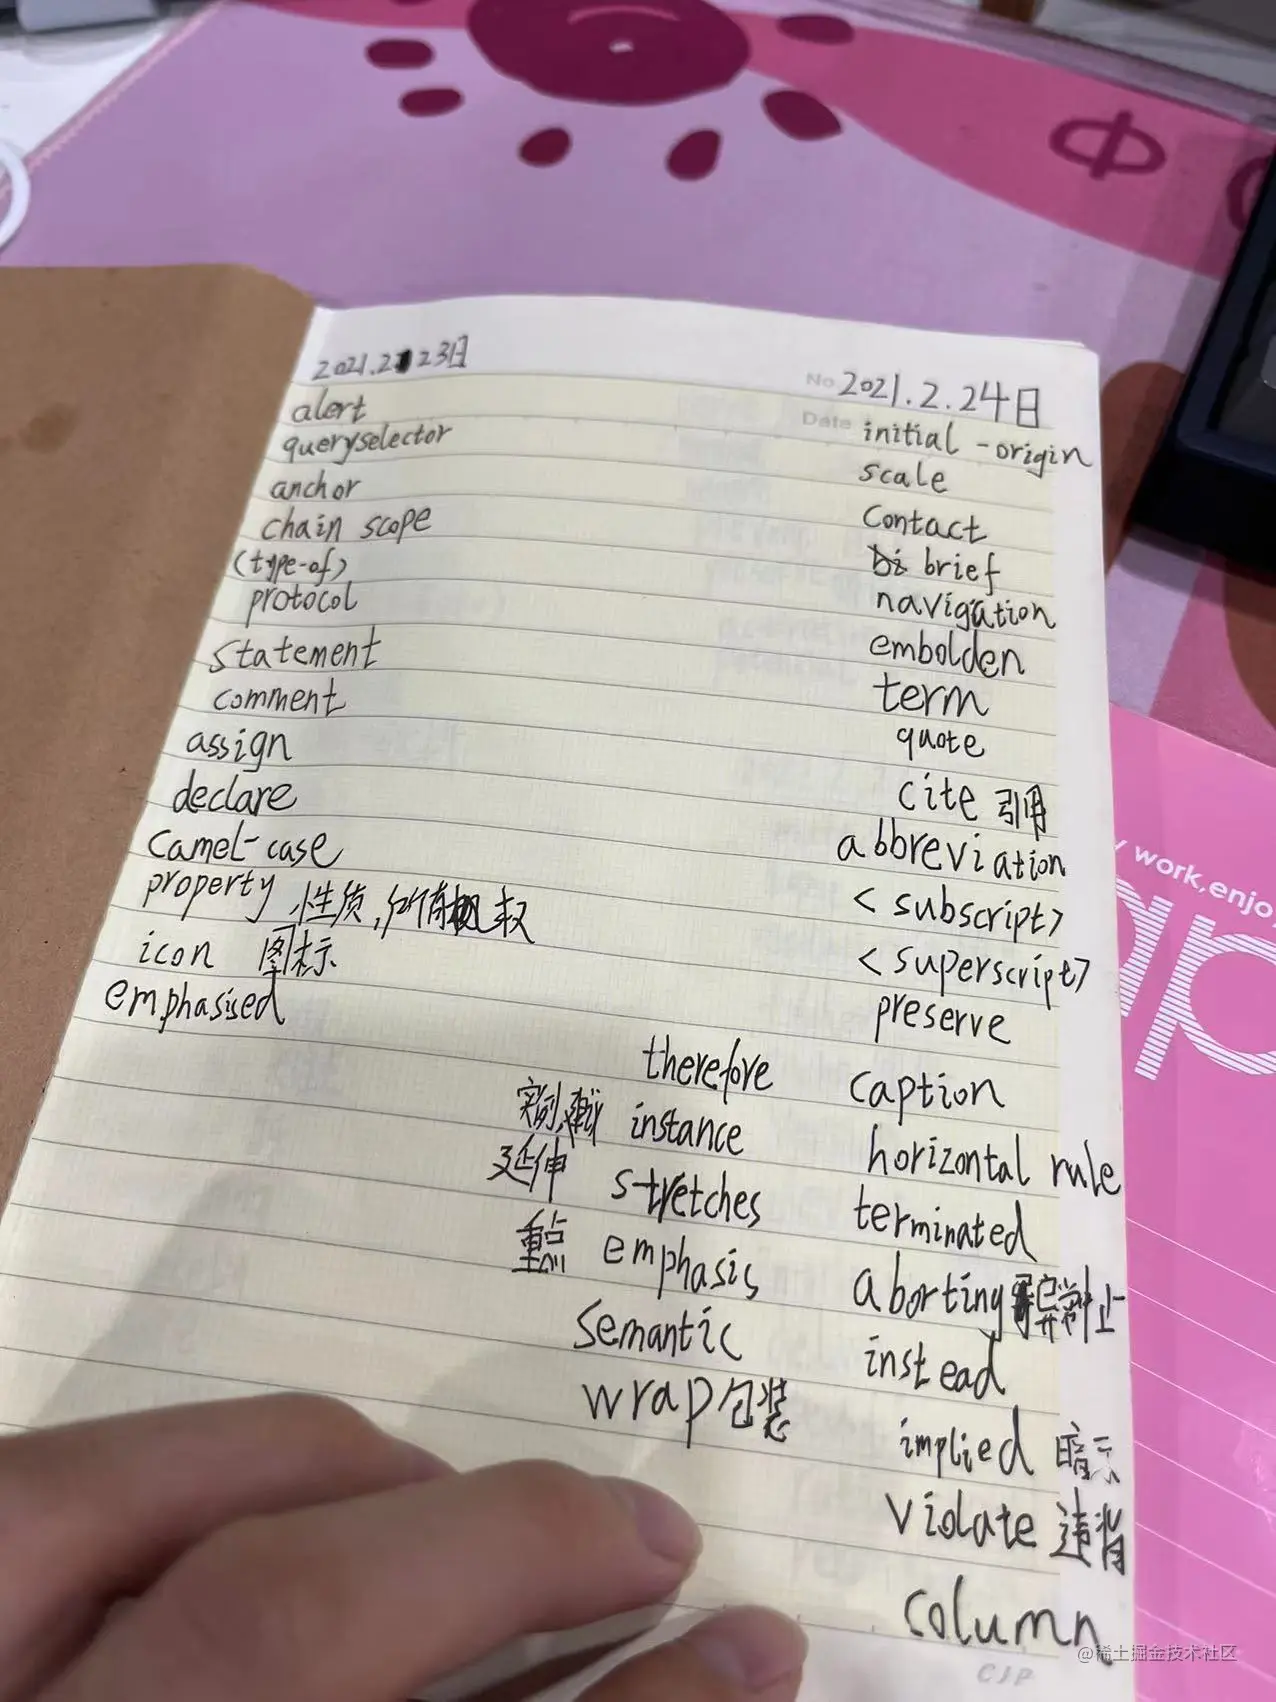 2021.2 23日
alert
queryselector
anchor
chain scope
(type-of)
protocol
statement
comment
assign
declare
camel-case
property 性质,所有权
icon 图标
emphasised
No 2021.2.24日
Date initial -origin
scale
contact
brief
navigation
embolden
term
quote
cite 引用
abbreviation
<subscript>
<superscript>
preserve
caption
horizontal rule
terminated
aborting 异常中止
instead
implied 暗示
violate 违背
column
therefore
实例, instance
延伸 stretches
重点 emphasis
semantic
wrap 包装
CJP
work,enjo
@稀土掘金技术社区